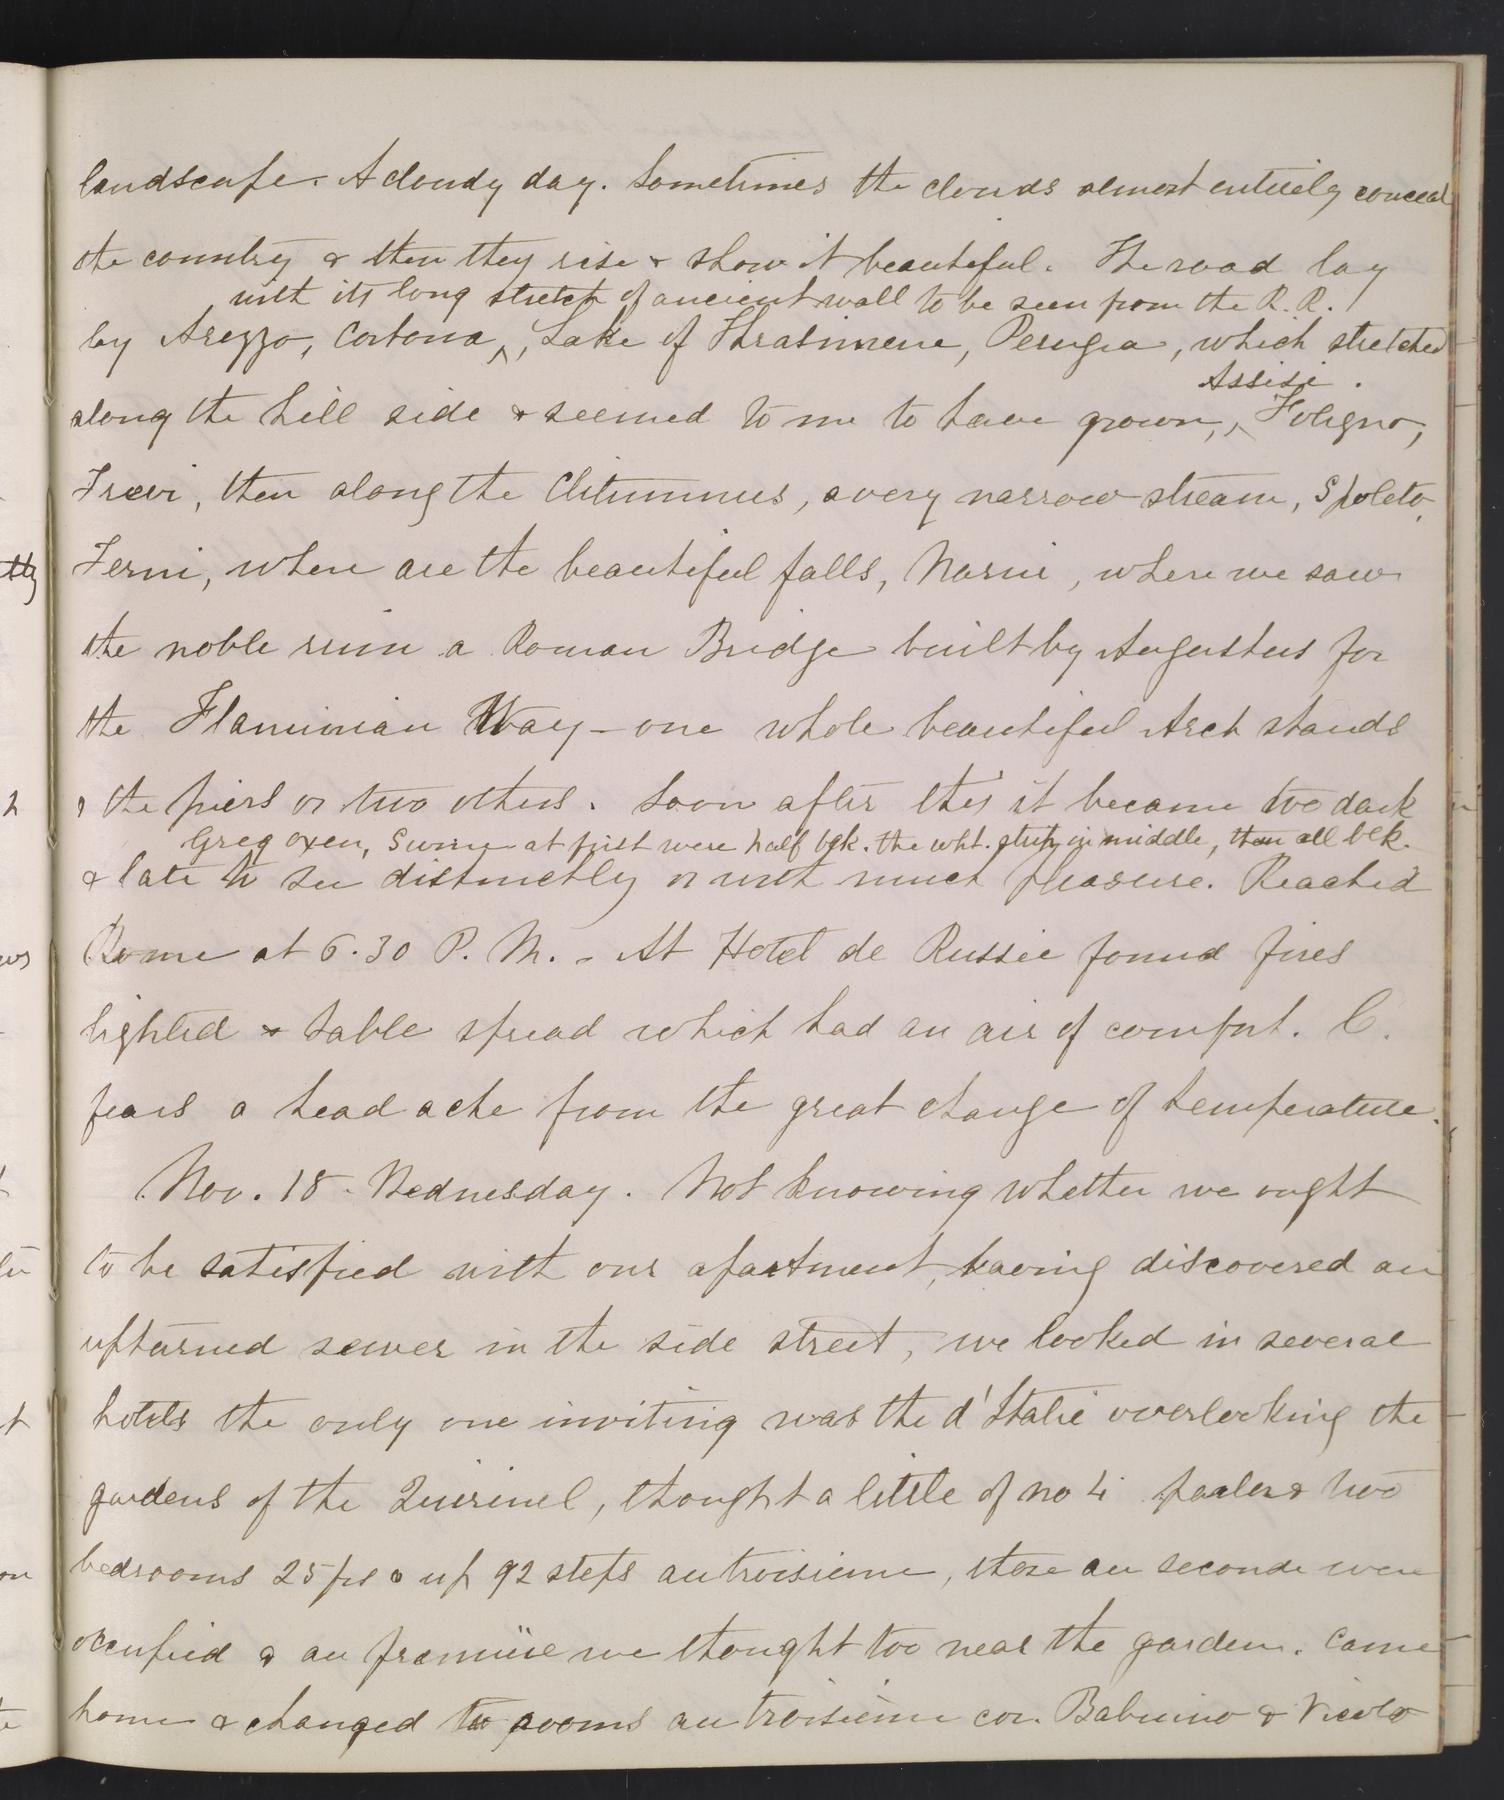 landscape. A cloudy day. Sometimes the clouds almost entirely conceal
the country & then they rise & show it beautiful. The road lay
with its long stretch of ancient wall to be seen from the R.R.
by Arezzo, Cortona, ^, Lake of Thrasimene, Perugia, which stretched
Assisi.
along the hill side & seemed to me to have grown, ^ Foligno,
Trevi, then along the Clitumnus, a very narrow stream, Spoleto,
Terni, where are the beautiful falls, Narni, where we saw
the noble ruin a Roman Bridge built by Augustus for
the Flaminian Way - one whole beautiful Arch stands
& the piers or two others. Soon after this it became too dark
Grey oxen, Swine at first were half blk. the wht. strip in middle, then all blk.
& late to see distinctly or with much pleasure. Reached
Rome at 6.30 P.M. - At Hotel de Russie found fires
lighted & table spread which had an air of comfort. C.
fears a head ache from the great change of temperature.
Nov. 18. Wednesday. Not knowing whether we ought
to be satisfied with our apartment, having discovered an
upturned sewer in the side street, we looked in several
hotels the only one inviting was the d'Italie overlooking the
gardens of the Quirinel, thought a little of no 4 parlor & two
bedrooms 25 frs up 92 steps au troisieme, those au seconde were
occupied & au premiüe we thought too near the garden. Came
home & changed to rooms au troisième cor. Babuino & Vicolo